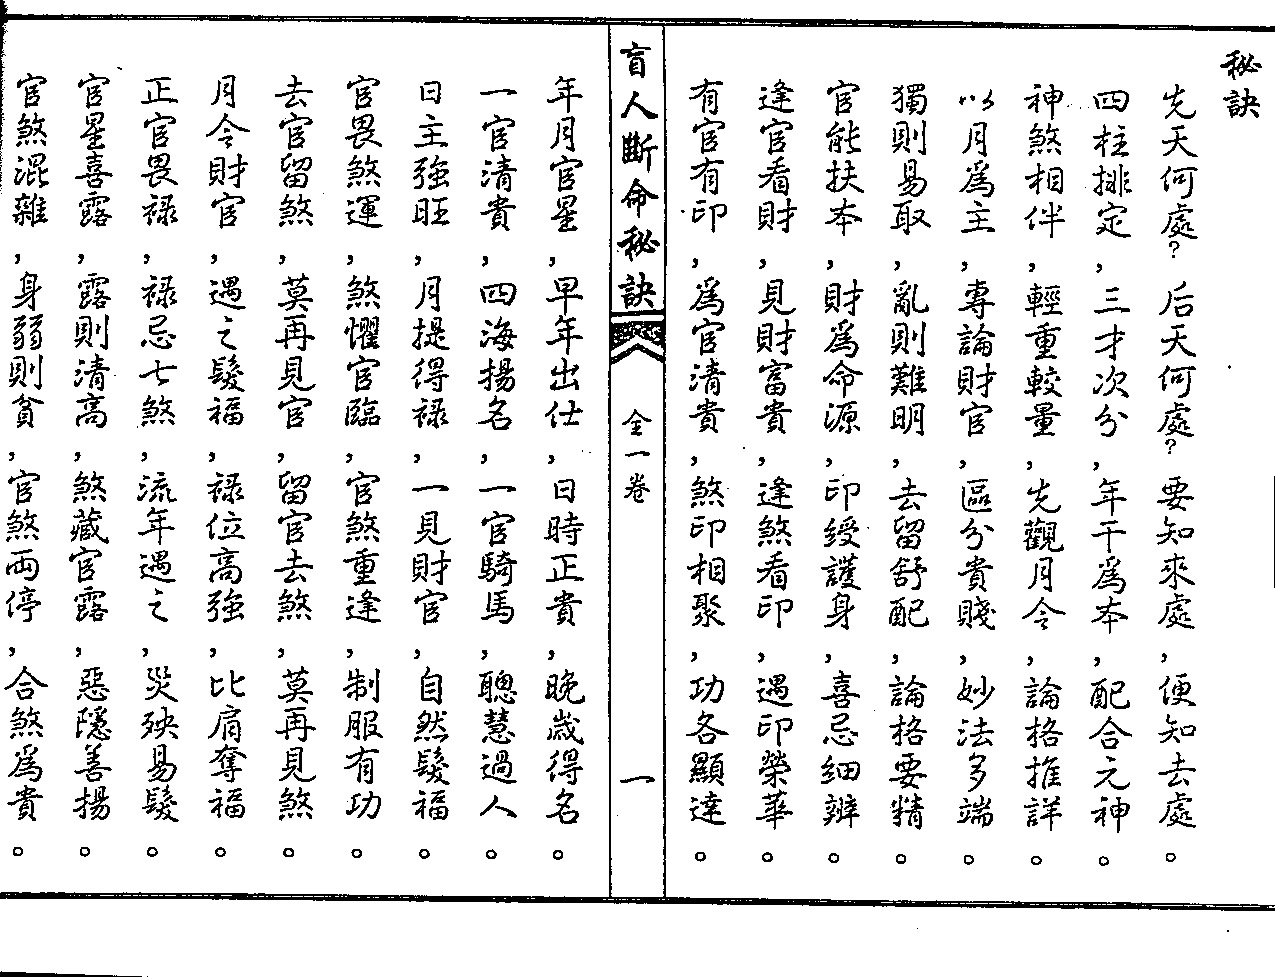 秘訣
先天何處？后天何處？要知來處，便知去處。
四柱排定，三才次分，年干為本，配合元神。
神煞相伴，輕重較量，先觀月令，論格推詳。
以月為主，專論財官，區分貴賤，妙法多端。
獨則易取，亂則難明，去留舒配，論格要精。
官能扶本，財為命源，印綬護身，喜忌細辨。
逢官看財，見財富貴，逢煞看印，遇印榮華。
有官有印，為官清貴，煞印相聚，功各顯達。
盲人斷命秘訣 全一卷 一
年月官星，早年出仕，日時正貴，晚歲得名。
一官清貴，四海揚名，一官騎馬，聰慧過人。
日主強旺，月提得祿，一見財官，自然髮福。
官畏煞運，煞懼官臨，官煞重逢，制服有功。
去官留煞，莫再見官，留官去煞，莫再見煞。
月令財官，遇之髮福，祿位高強，比肩奪福。
正官畏祿，祿忌七煞，流年遇之，災殃易髮。
官星喜露，露則清高，煞藏官露，惡隱善揚。
官煞混雜，身弱則貧，官煞兩停，合煞為貴。